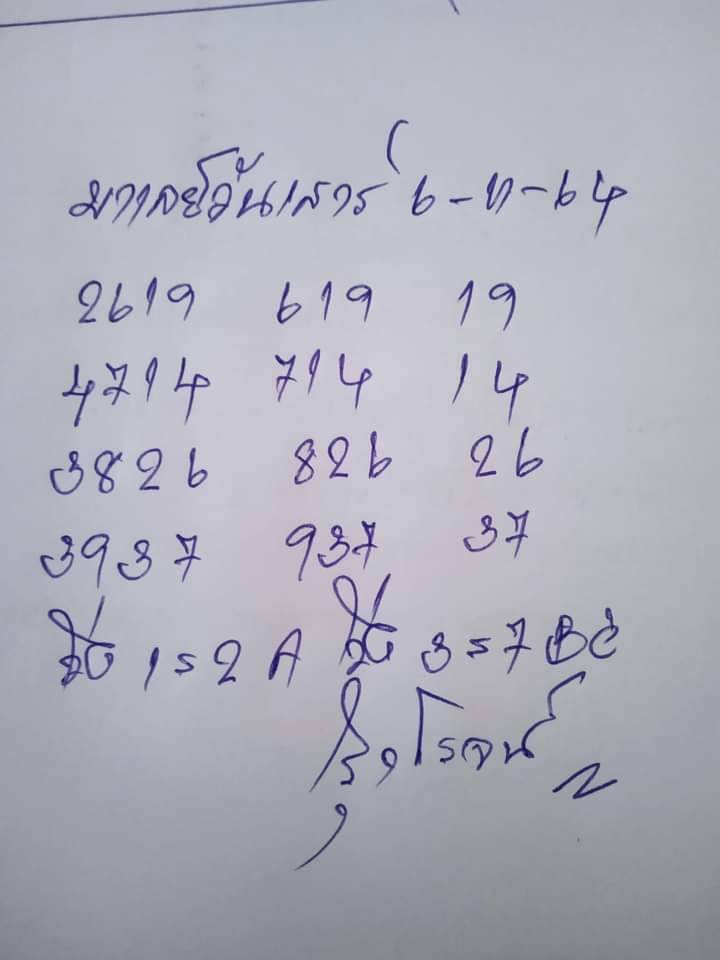 มาเลย์วันเสาร์ 6-11-64
2619 619 19
4714 714 14
3826 826 26
3937 937 37
1=2 A 3=7 BC
โรจน์